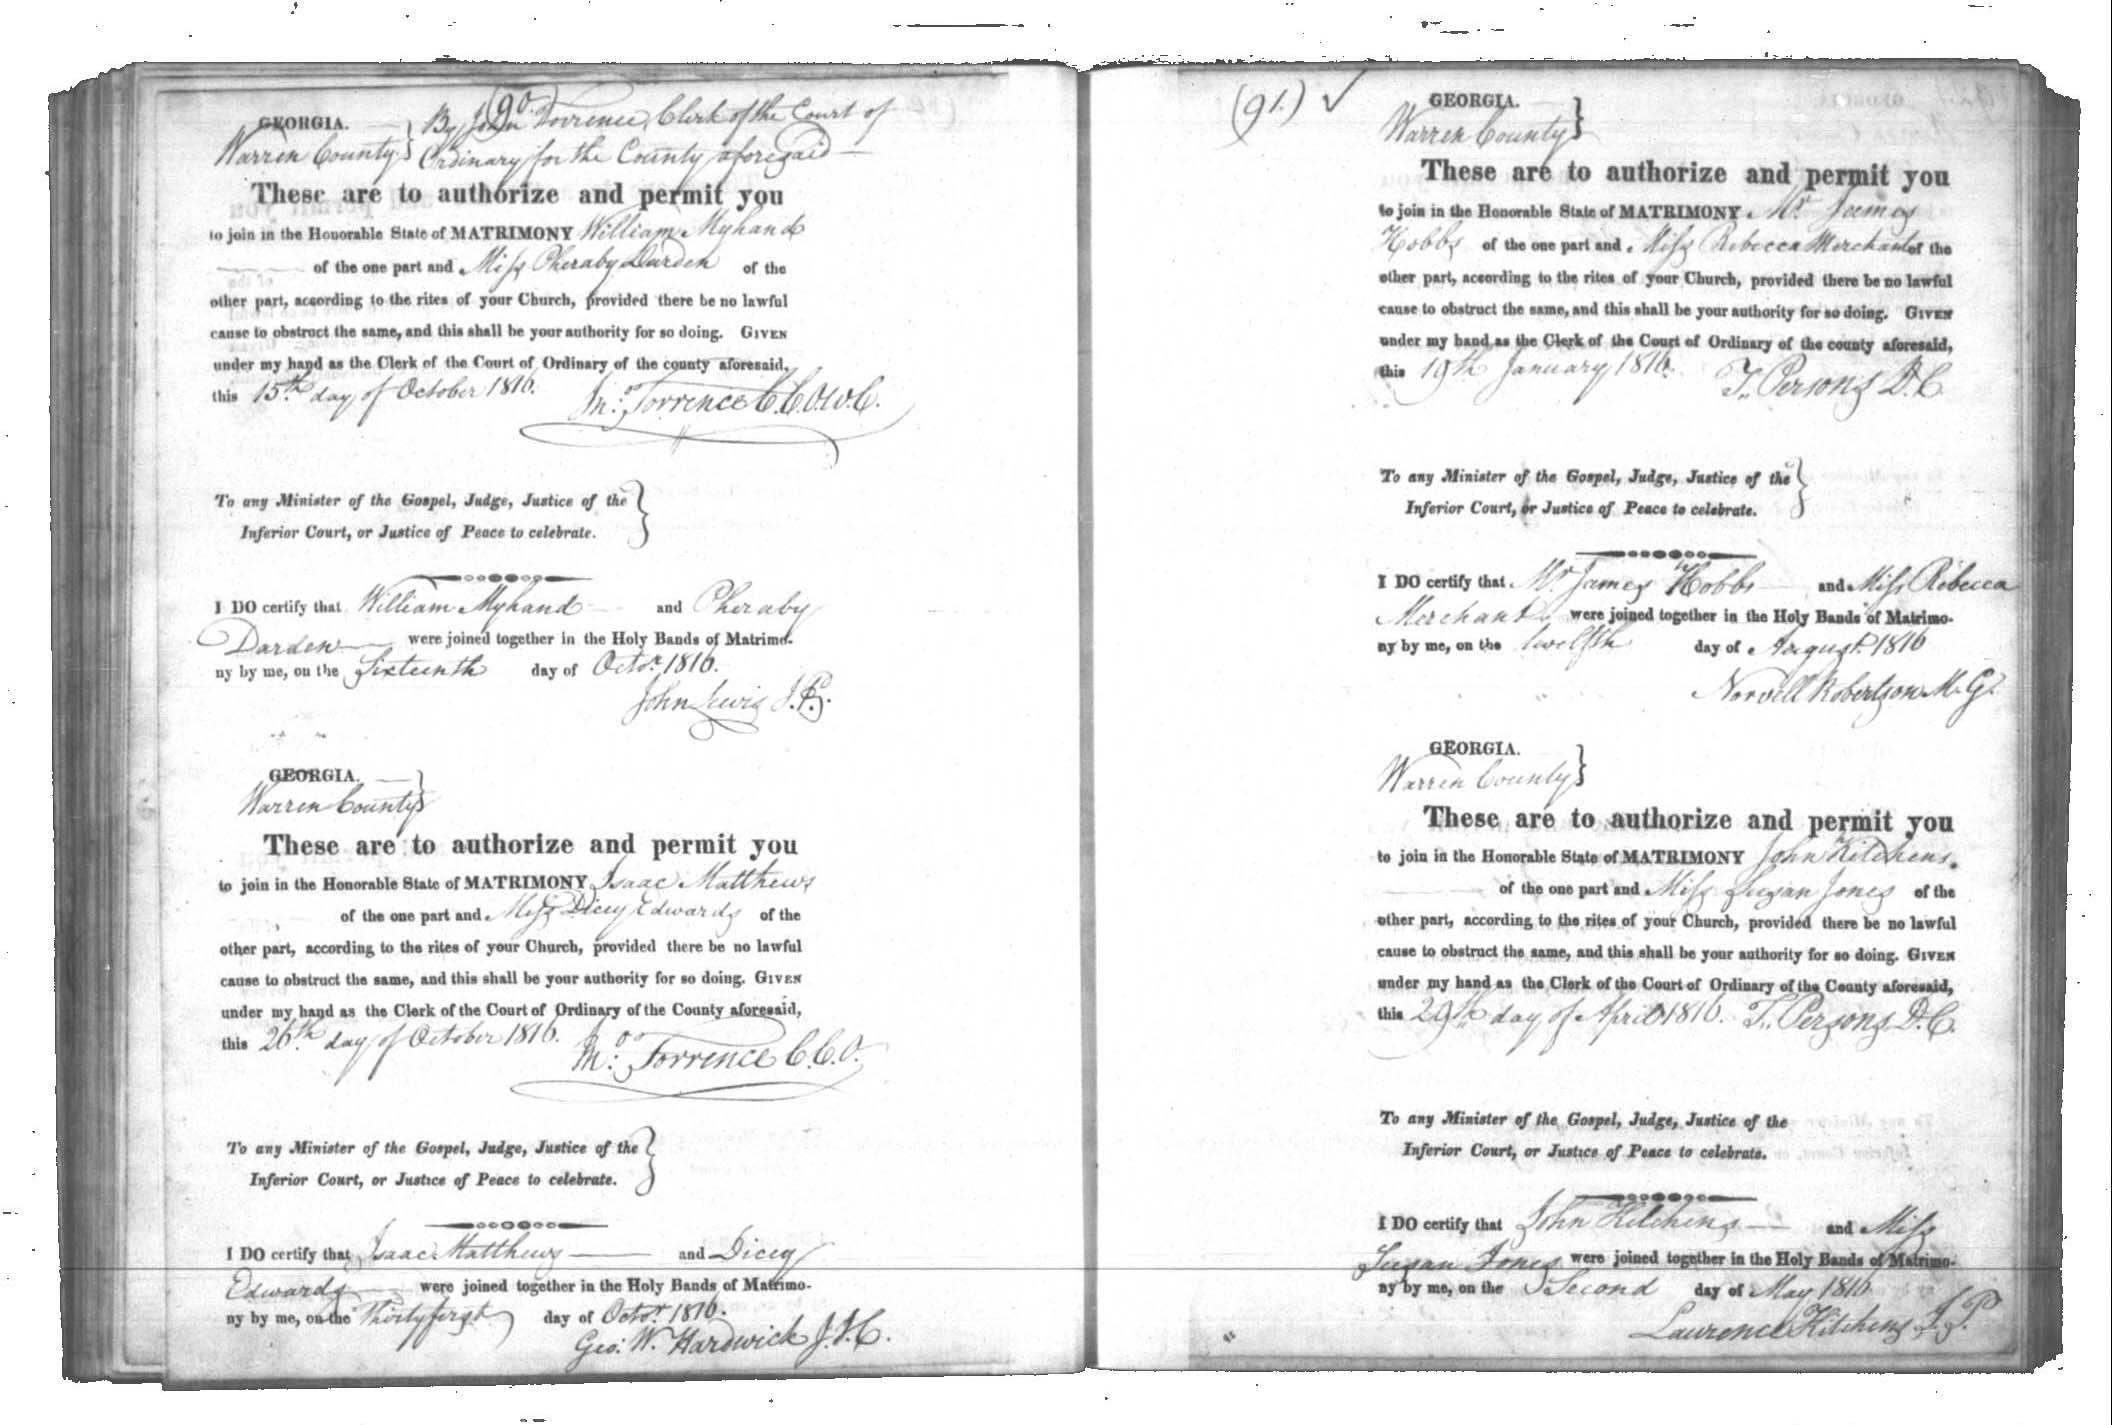 (90)
GEORGIA. By John Torrence, Clerk of the Court of
Warren County } Ordinary for the County aforesaid
These are to authorize and permit you
to join in the Honorable State of MATRIMONY William Myhand
of the one part and Miss Pheraby Darden of the
other part, according to the rites of your Church, provided there be no lawful
cause to obstruct the same, and this shall be your authority for so doing. GIVEN
under my hand as the Clerk of the Court of Ordinary of the county aforesaid,
this 15th day of October 1816. Jno. Torrence C.C.O.W.C.
To any Minister of the Gospel, Judge, Justice of the }
Inferior Court, or Justice of Peace to celebrate.
I DO certify that William Myhand and Pheraby
Darden were joined together in the Holy Bands of Matrimo-
ny by me, on the Sixteenth day of Octor. 1816.
John Lewis J.P.
GEORGIA. }
Warren County
These are to authorize and permit you
to join in the Honorable State of MATRIMONY Isaac Matthews
of the one part and Miss Dicey Edwards of the
other part, according to the rites of your Church, provided there be no lawful
cause to obstruct the same, and this shall be your authority for so doing. GIVEN
under my hand as the Clerk of the Court of Ordinary of the County aforesaid,
this 26th day of October 1816. Jno. Torrence C.C.O.
To any Minister of the Gospel, Judge, Justice of the }
Inferior Court, or Justice of Peace to celebrate.
I DO certify that Isaac Matthews and Dicey
Edwards were joined together in the Holy Bands of Matrimo-
ny by me, on the Thirty first day of Octor. 1816.
Geo. W. Hardwick J.I.C.
(91.) ✓
GEORGIA. }
Warren County
These are to authorize and permit you
to join in the Honorable State of MATRIMONY Mr. James
Hobbs of the one part and Miss Rebecca Merchant of the
other part, according to the rites of your Church, provided there be no lawful
cause to obstruct the same, and this shall be your authority for so doing. GIVEN
under my hand as the Clerk of the Court of Ordinary of the county aforesaid,
this 19th January 1816. T. Persons D.C.
To any Minister of the Gospel, Judge, Justice of the }
Inferior Court, or Justice of Peace to celebrate.
I DO certify that Mr. James Hobbs and Miss Rebecca
Merchant were joined together in the Holy Bands of Matrimo-
ny by me, on the twelfth day of August 1816
Norvell Robertson M.G.
GEORGIA. }
Warren County
These are to authorize and permit you
to join in the Honorable State of MATRIMONY John Kitchens.
of the one part and Miss Susan Jones of the
other part, according to the rites of your Church, provided there be no lawful
cause to obstruct the same, and this shall be your authority for so doing. GIVEN
under my hand as the Clerk of the Court of Ordinary of the County aforesaid,
this 29th day of April 1816. T. Persons D.C.
To any Minister of the Gospel, Judge, Justice of the
Inferior Court, or Justice of Peace to celebrate.
I DO certify that John Kitchens and Miss
Susan Jones were joined together in the Holy Bands of Matrimo-
ny by me, on the Second day of May 1816
Laurence Kitchens J.P.